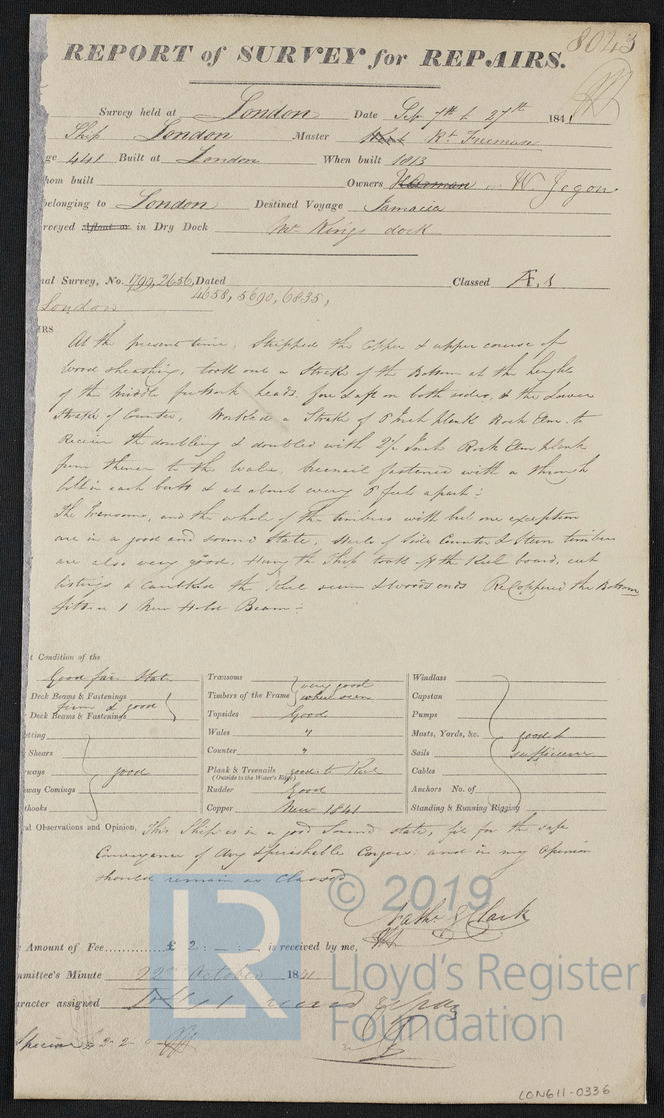 8043
REPORT of SURVEY for REPAIRS.
Survey held at London Date Sep 7th to 27th 1841
Ship London Master Rt Freeman
ge 441 Built at London When built 1813
hom built Owners Harman W. Jegon
belonging to London Destined Voyage Jamaica
rveyed Afloat or in Dry Dock Mr Kings dock
nal Survey, No. 1790, 2656, Dated Classed Æ, 1
London 4658, 5690, 6835,
IRS
At the present time, Stripped the Copper & upper course of
Wood sheathing, took out a Strake of the Bottom at the height
of the Middle futtock heads, fore & aft on both sides, & the Lower
Strake of Counter, Worked a Strake of 5 Inch plank Rock Elm to
Receive the doubling & doubled with 2½ Inch Rock Elm plank
from thence to the Wales, treenail fastened with a through
bolt in each butt & at about every 5 feet apart:
The Transoms, and the whole of the timbers with but one exception
are in a good and sound State, Heels of Side Counter & Stern timbers
are also very good, Hung the Ship took off the Keel board, cut
listings & Caulked the Keel seam & Woods ends ReCoppered the Bottom
fitted 1 New Hold Beam:
t Condition of the
Good fair State
Deck Beams & Fastenings
firm & good
Deck Beams & Fastenings
tting
Shears
ways good
way Comings
hooks
Transoms very good
Timbers of the Frame when seen
Topsides Good
Wales "
Counter "
Plank & Treenails good to Keel
(Outside to the Water's Edge)
Rudder Good
Copper New 1841
Windlass
Capstan
Pumps
Masts, Yards, &c. good &
Sails sufficient
Cables
Anchors No. of
Standing & Running Rigging
al Observations and Opinion, This Ship is in a good Sound state, fit for the safe
Conveyance of dry & perishable Cargoes and in my Opinion
should remain as Classed
© 2019
Nathl. Clark
Amount of Fee £ 2 : - : - is received by me,
mmittee's Minute 22nd October 1841
aracter assigned
Special £ 2-2-0
LR
Lloyd's Register
Foundation
LON611-0336